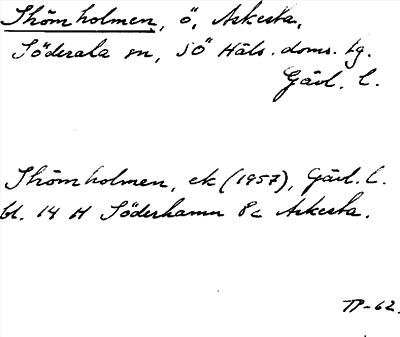 Strömholmen, ö, Askesta,
Söderala sn, SÖ Häls. doms. tg.
Gävl. l.
Strömholmen, ek (1957), Gävl. l.
bl. 14 H Söderhamn 8c Askesta.
TP-62.